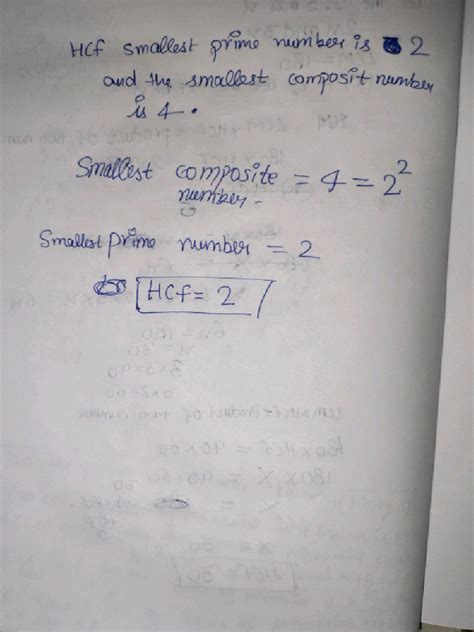 HCf smallest prime number is 2
and the smallest composit number
is 4.
Smallest composite = 4 = 2²
number.
Smallest prime number = 2
HCf = 2